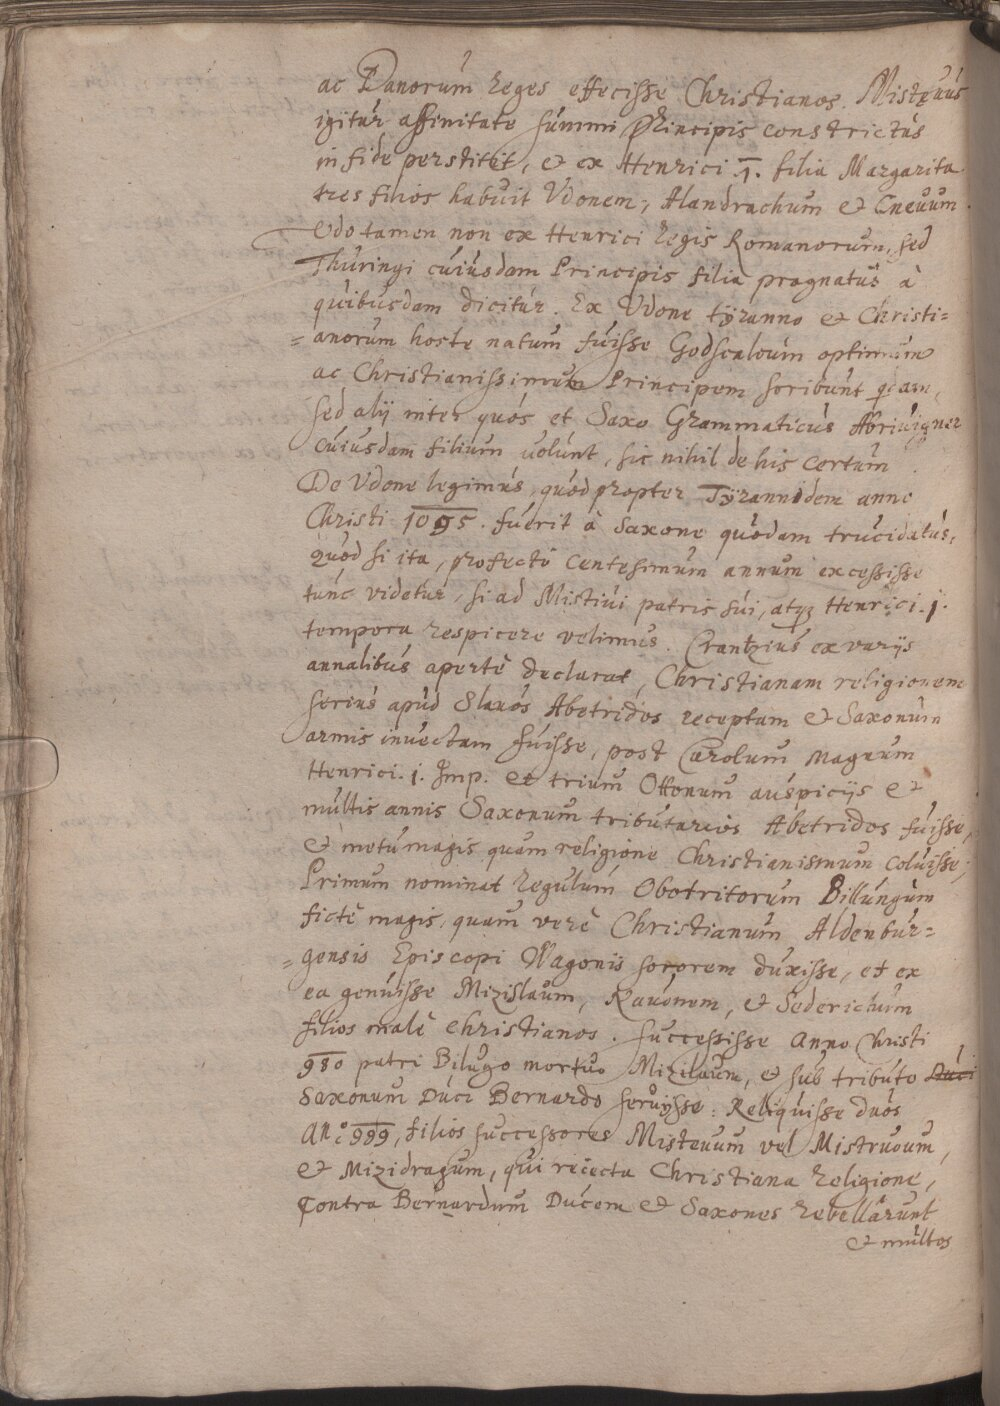 ac Danorum Reges effecisse Christianos. Misteuus
igitur affinitate summi Principis constrictus
in fide perstitit, et ex Henrici .1. filia Margarita
tres filios habuit Vdonem, Alandrachum et Cneuum
Vdo tamen non ex Henrici Regis Romanorum, sed
Thuringi cuiusdam Principis filia prognatus à
quibusdam dicitur. Ex Vdone tÿranno et Christi=
=anorum hoste natum fuisse Godscalcum optimum
ac Christianissimum Principem scribunt qdam,
sed alij inter quos et Saxo Grammaticus
cuiusdam filium volunt, sic nihil de his certum.
De Vdone legimus, quod propter Tÿrannidem anno
Christi 1095. fuerit à Saxone quodam trucidatus,
Quod si ita, profectò Centesimum annum excessisse
tunc videtur, si ad Mistiui patris sui, atq3 Henrici .j.
tempora respicere velimus. Crantzius ex varijs
annalibus apertè declarat, Christianam religionem
serius apud Slauos Abetridos receptam et Saxonum
armis inuectam fuisse, post Carolum Magnum
Henrici .j. Imp. et trium Ottonum auspicijs et
multis annis Saxonum tributarios Abetridos fuisse,
et metu magis quam religione Christianismum coluisse;
Primum nominat Regulum Obotritorum Billungum
fictè magis, quam verè Christianum Aldenbur=
=gensis Episcopi Wagonis sororem duxisse, et ex
ea genuisse Mizislaum, Nauonem, et Sederichum
filios malè Christianos. Successisse Anno Christi
980 patri Bilugo mortuo Mizilaum, et sub tributo Duci
Saxonum Duci Bernardo seruijsse. Reliquisse duos
Anº 999, filios successores Misteuum vel Mistruoum,
et Mizidragum, qui reiecta Christiana Religione,
Contra Bernardum Ducem et Saxones rebellârunt
et multos